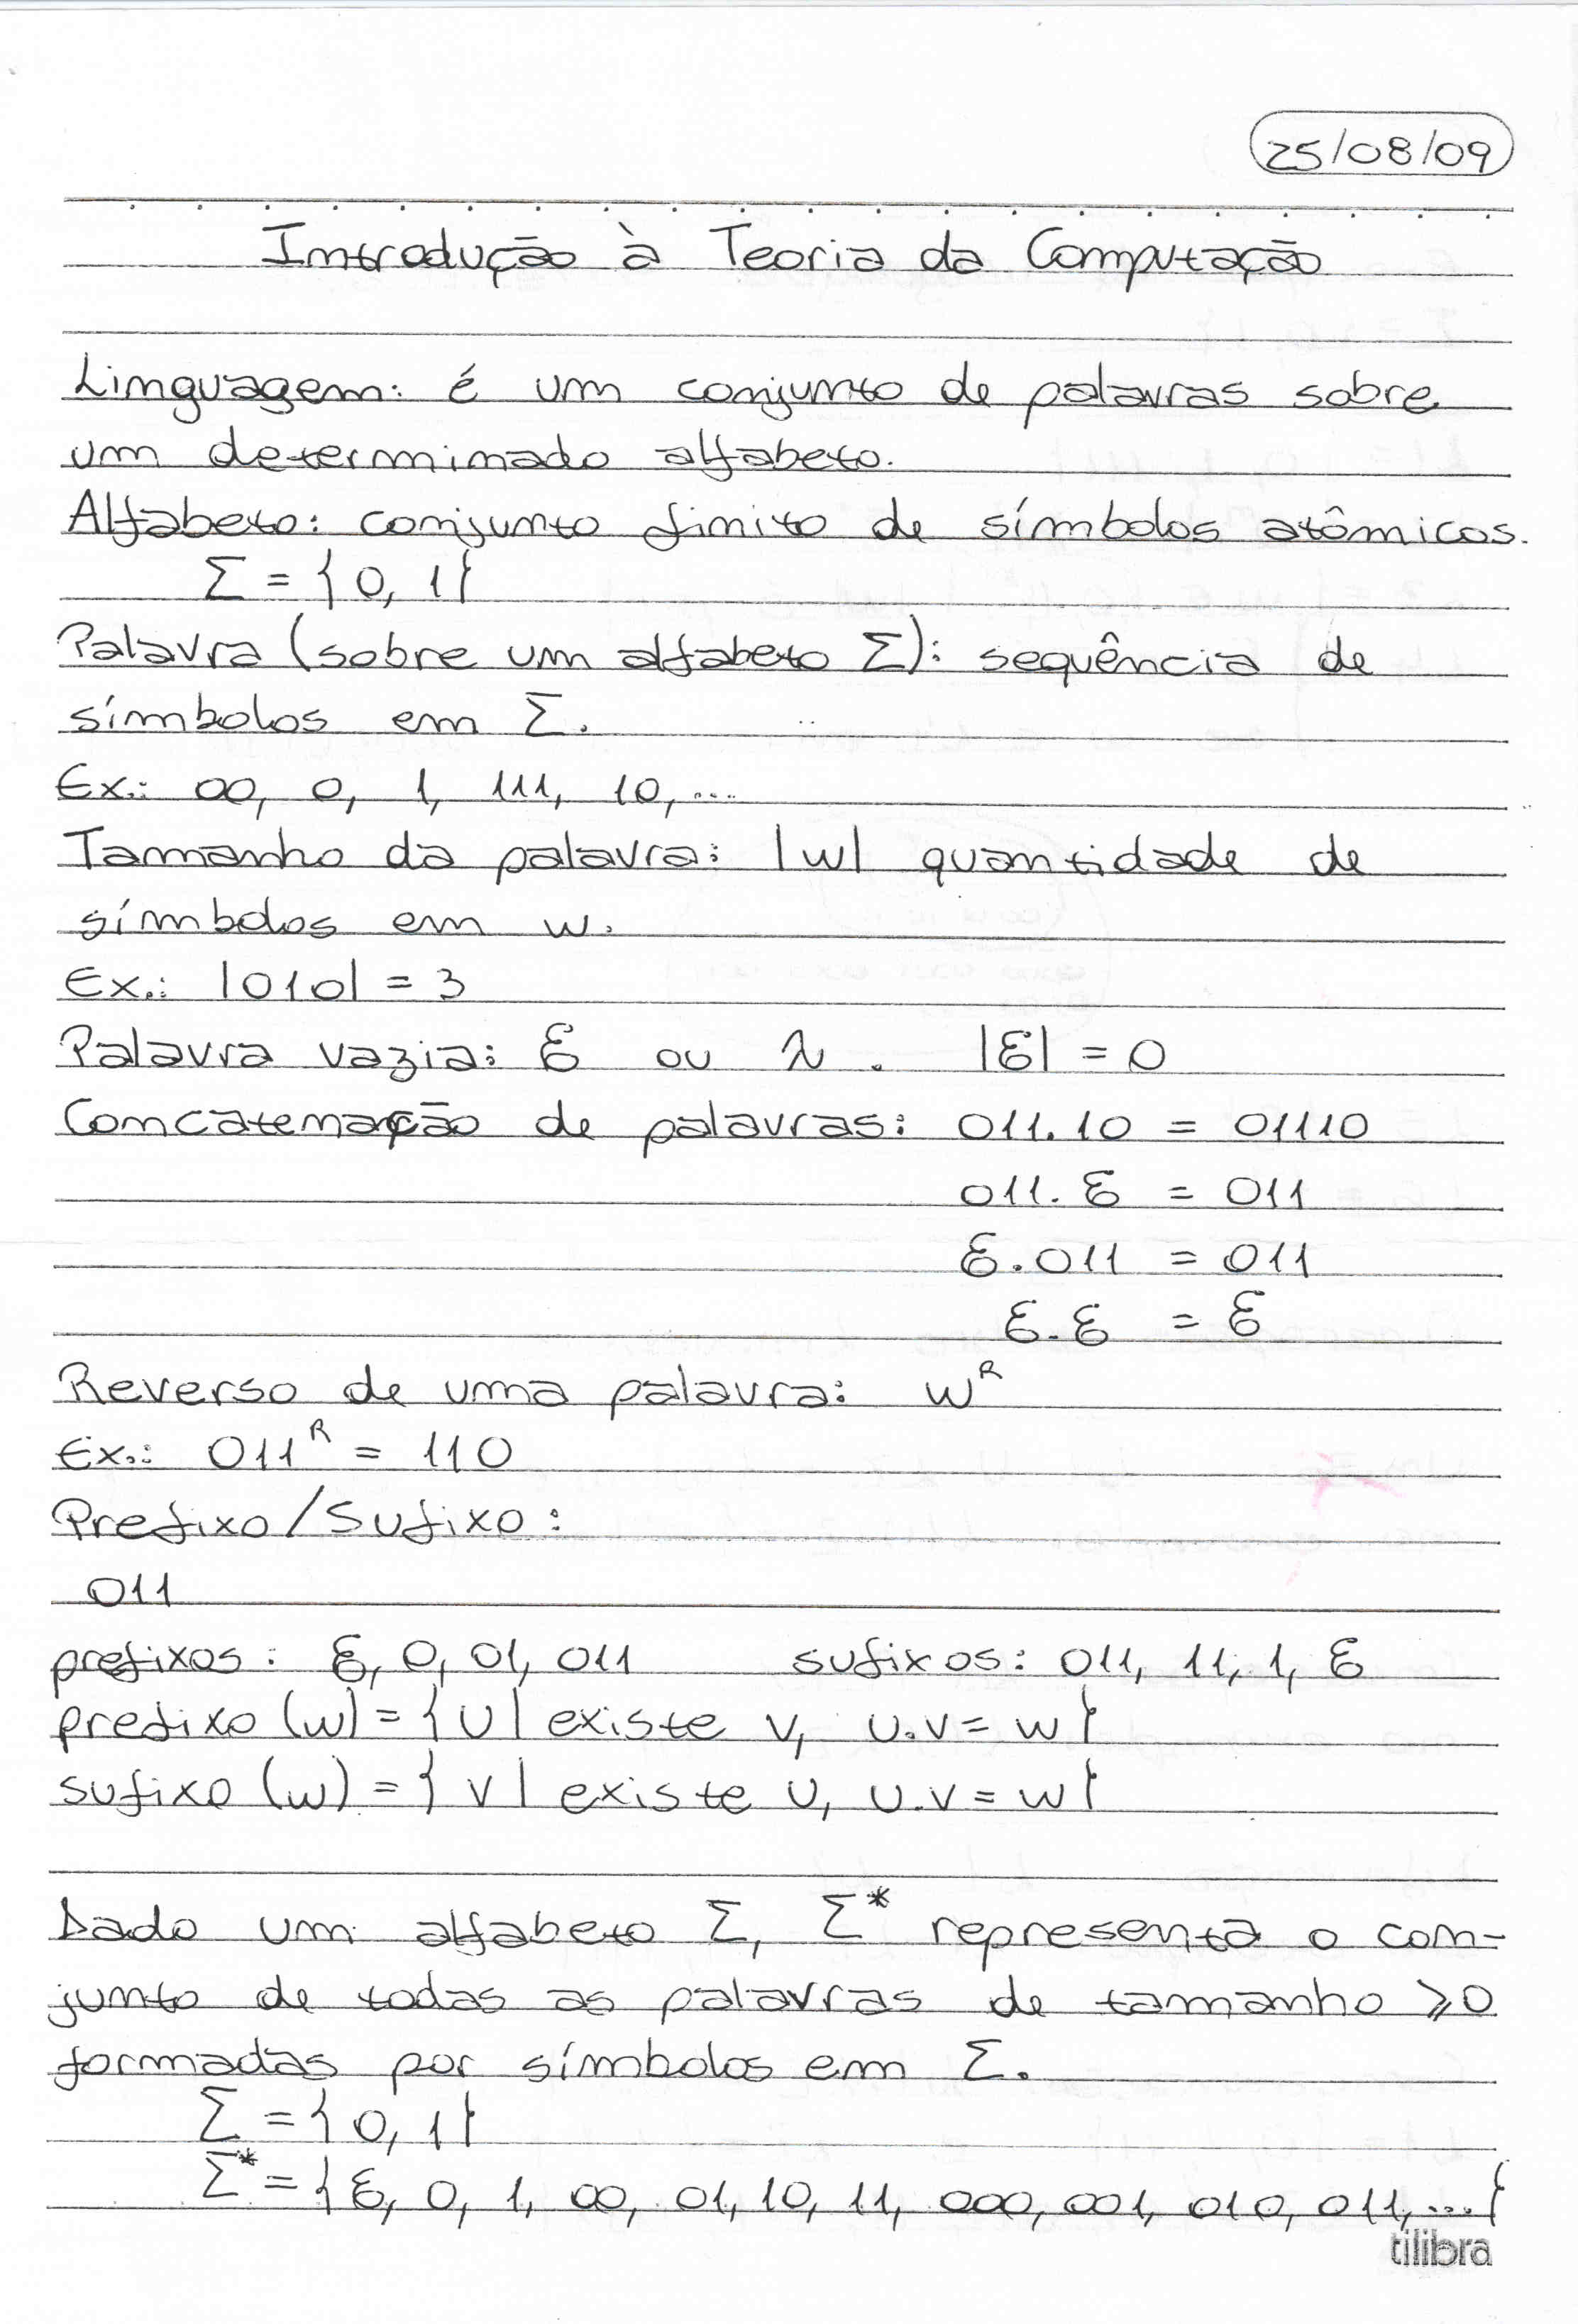 25/08/09
Introdução à Teoria da Computação
Linguagem: é um conjunto de palavras sobre
um determinado alfabeto.
Alfabeto: conjunto finito de símbolos atômicos.
Σ = {0, 1}
Palavra (sobre um alfabeto Σ): sequência de
símbolos em Σ.
Ex.: 00, 0, 1, 111, 10, ...
Tamanho da palavra: |w| quantidade de
símbolos em w.
Ex.: |010| = 3
Palavra vazia: ε ou λ. |ε| = 0
Concatenação de palavras: 011.10 = 01110
011.ε = 011
ε.011 = 011
ε.ε = ε
Reverso de uma palavra: wᴿ
Ex.: 011ᴿ = 110
Prefixo/Sufixo:
011
prefixos: ε, 0, 01, 011 sufixos: 011, 11, 1, ε
prefixo (w) = {u | existe v, u.v = w}
sufixo (w) = {v | existe u, u.v = w}
Dado um alfabeto Σ, Σ* representa o con-
junto de todas as palavras de tamanho ⩾0
formadas por símbolos em Σ.
Σ = {0, 1}
Σ* = {ε, 0, 1, 00, 01, 10, 11, 000, 001, 010, 011, ...}
tilibra